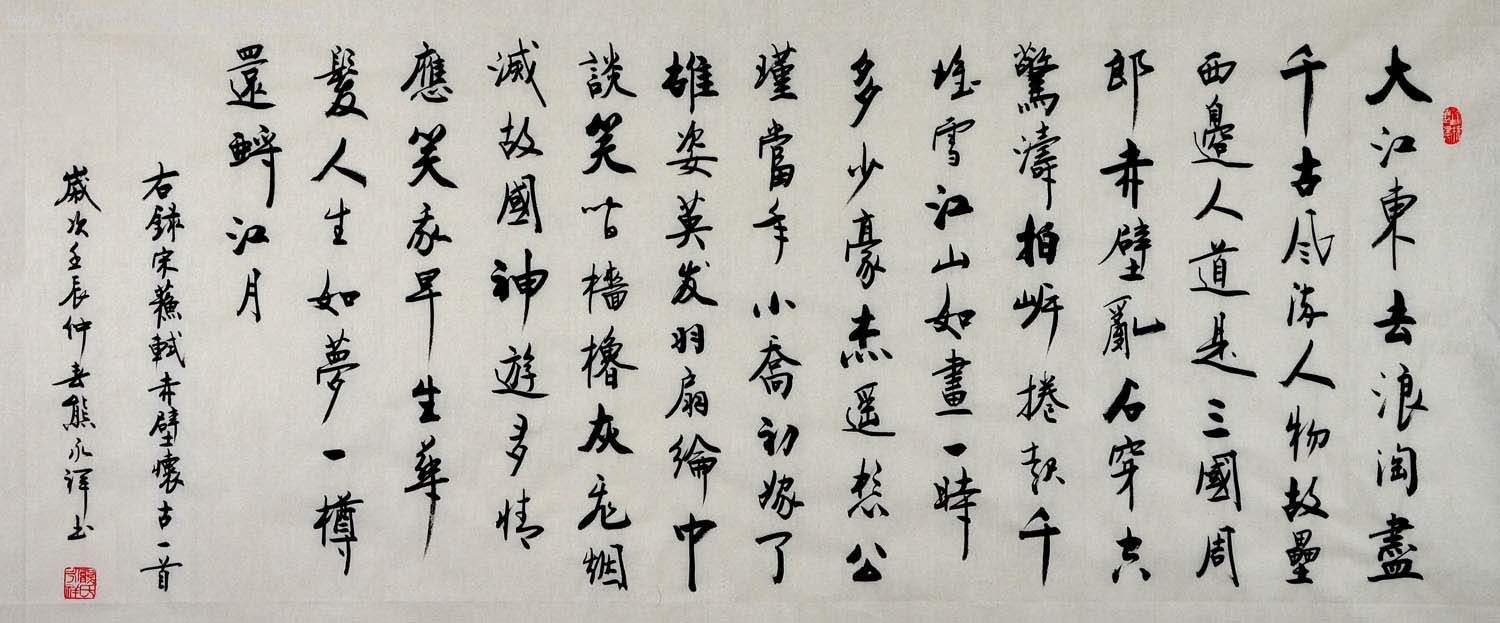 大江東去浪淘盡
千古风流人物故壘
西邊人道是三國周
郎赤壁亂石穿空
驚濤拍岍捲起千
堆雪江山如畫一時
多少豪杰遥想公
瑾當年小喬初嫁了
雄姿英发羽扇綸巾
談笑间檣櫓灰飛烟
滅故國神遊多情
應笑我早生華
髮人生如夢一樽
還酹江月
右錄宋蘇軾赤壁懷古一首
歲次壬辰仲春熊永书